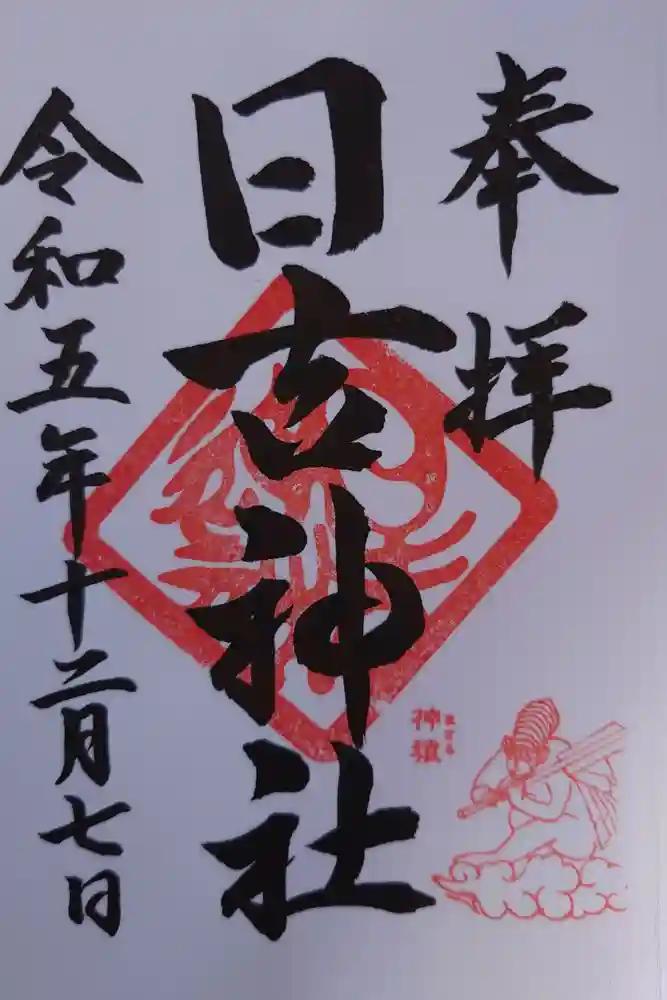 奉拝
日古神社
神猿
まさる
令和五年十二月七日